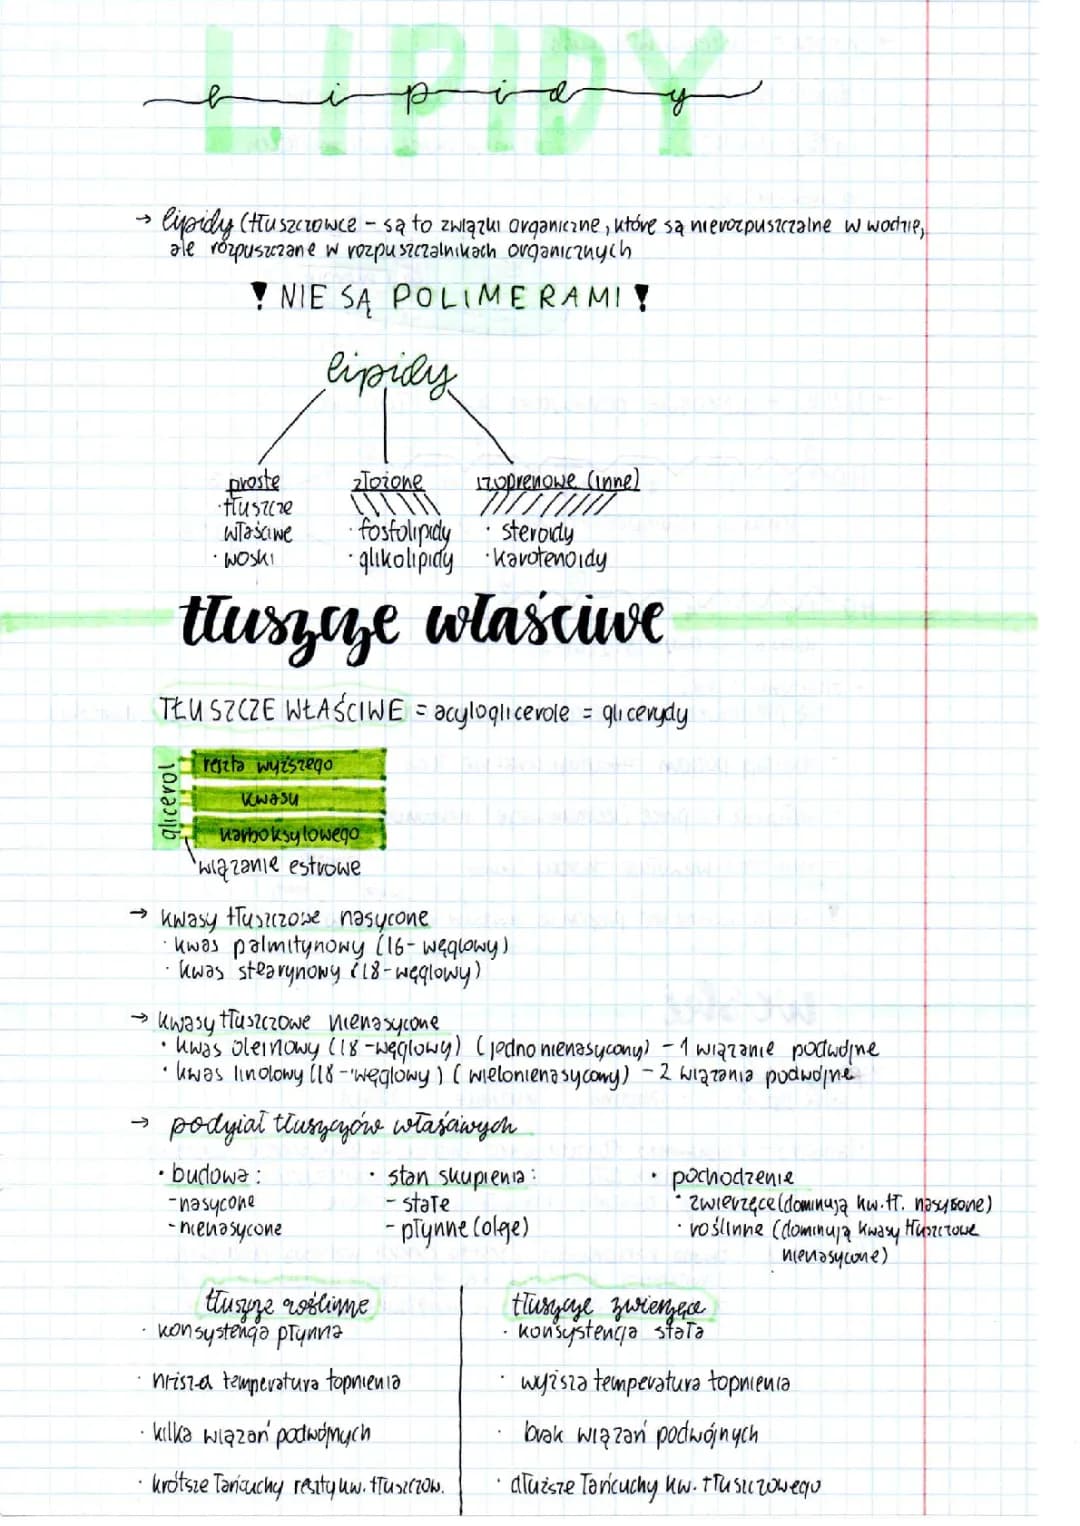 LIPIDY
lipidy
→ lipidy (tłuszczowce – są to związki organiczne, które są nierozpuszczalne w wodzie,
ale rozpuszczane w rozpuszczalnikach organicznych
! NIE SĄ POLIMERAMI !
lipidy
proste złożone izoprenowe (inne)
· tłuszcze
właściwe · fosfolipidy · steroidy
· woski · glikolipidy · karotenoidy
tłuszcze właściwe
TŁUSZCZE WŁAŚCIWE = acyloglicerole = glicerydy
glicerol
reszta wyższego
kwasu
karboksylowego
wiązanie estrowe
→ kwasy tłuszczowe nasycone
· kwas palmitynowy (16-węglowy)
· kwas stearynowy (18-węglowy)
→ kwasy tłuszczowe nienasycone
· kwas oleinowy (18-węglowy) (jednonienasycony) – 1 wiązanie podwójne
· kwas linolowy (18-węglowy) (wielonienasycony) – 2 wiązania podwójne
→ podział tłuszczów właściwych
· budowa: · stan skupienia: · pochodzenie
- nasycone - stałe · zwierzęce (dominują kw. tł. nasycone)
- nienasycone - płynne (oleje) · roślinne (dominują kwasy tłuszczowe
nienasycone)
tłuszcze roślinne tłuszcze zwierzęce
· konsystencja płynna · konsystencja stała
· niższa temperatura topnienia · wyższa temperatura topnienia
· kilka wiązań podwójnych · brak wiązań podwójnych
· krótsze łańcuchy reszty kw. tłuszczow. · dłuższe łańcuchy kw. tłuszczowego